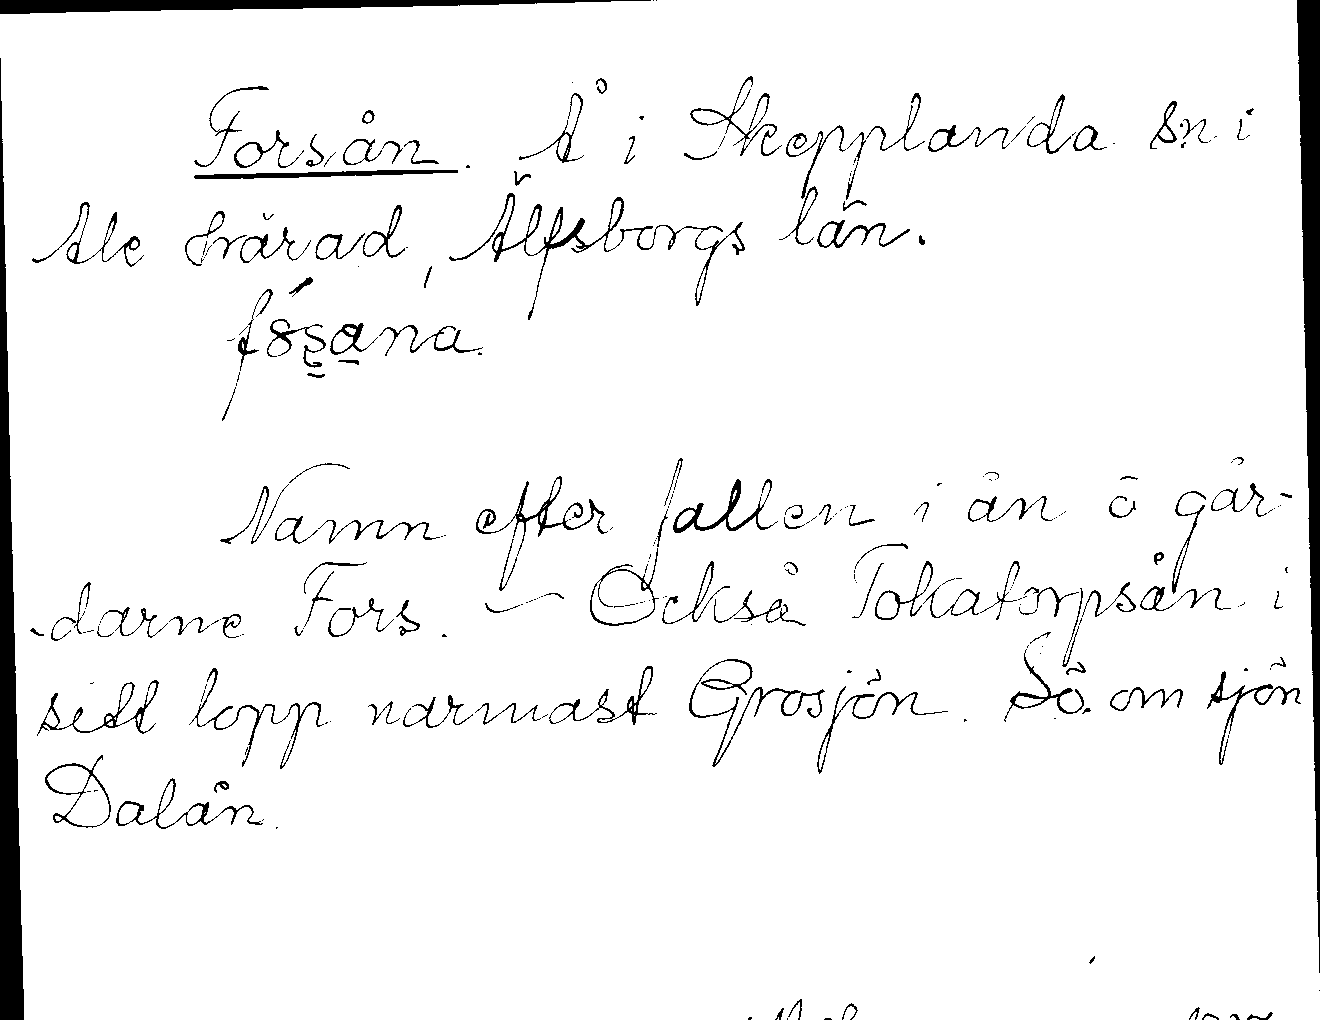 Forsån. Å i Skepplanda sn i
Ale härad, Älfsborgs län.
Namn efter fallen i ån o går-
darne Fors. – Också Tokatorpsån i
sitt lopp narmast Grosjön. Sö. om sjön
Dalån.